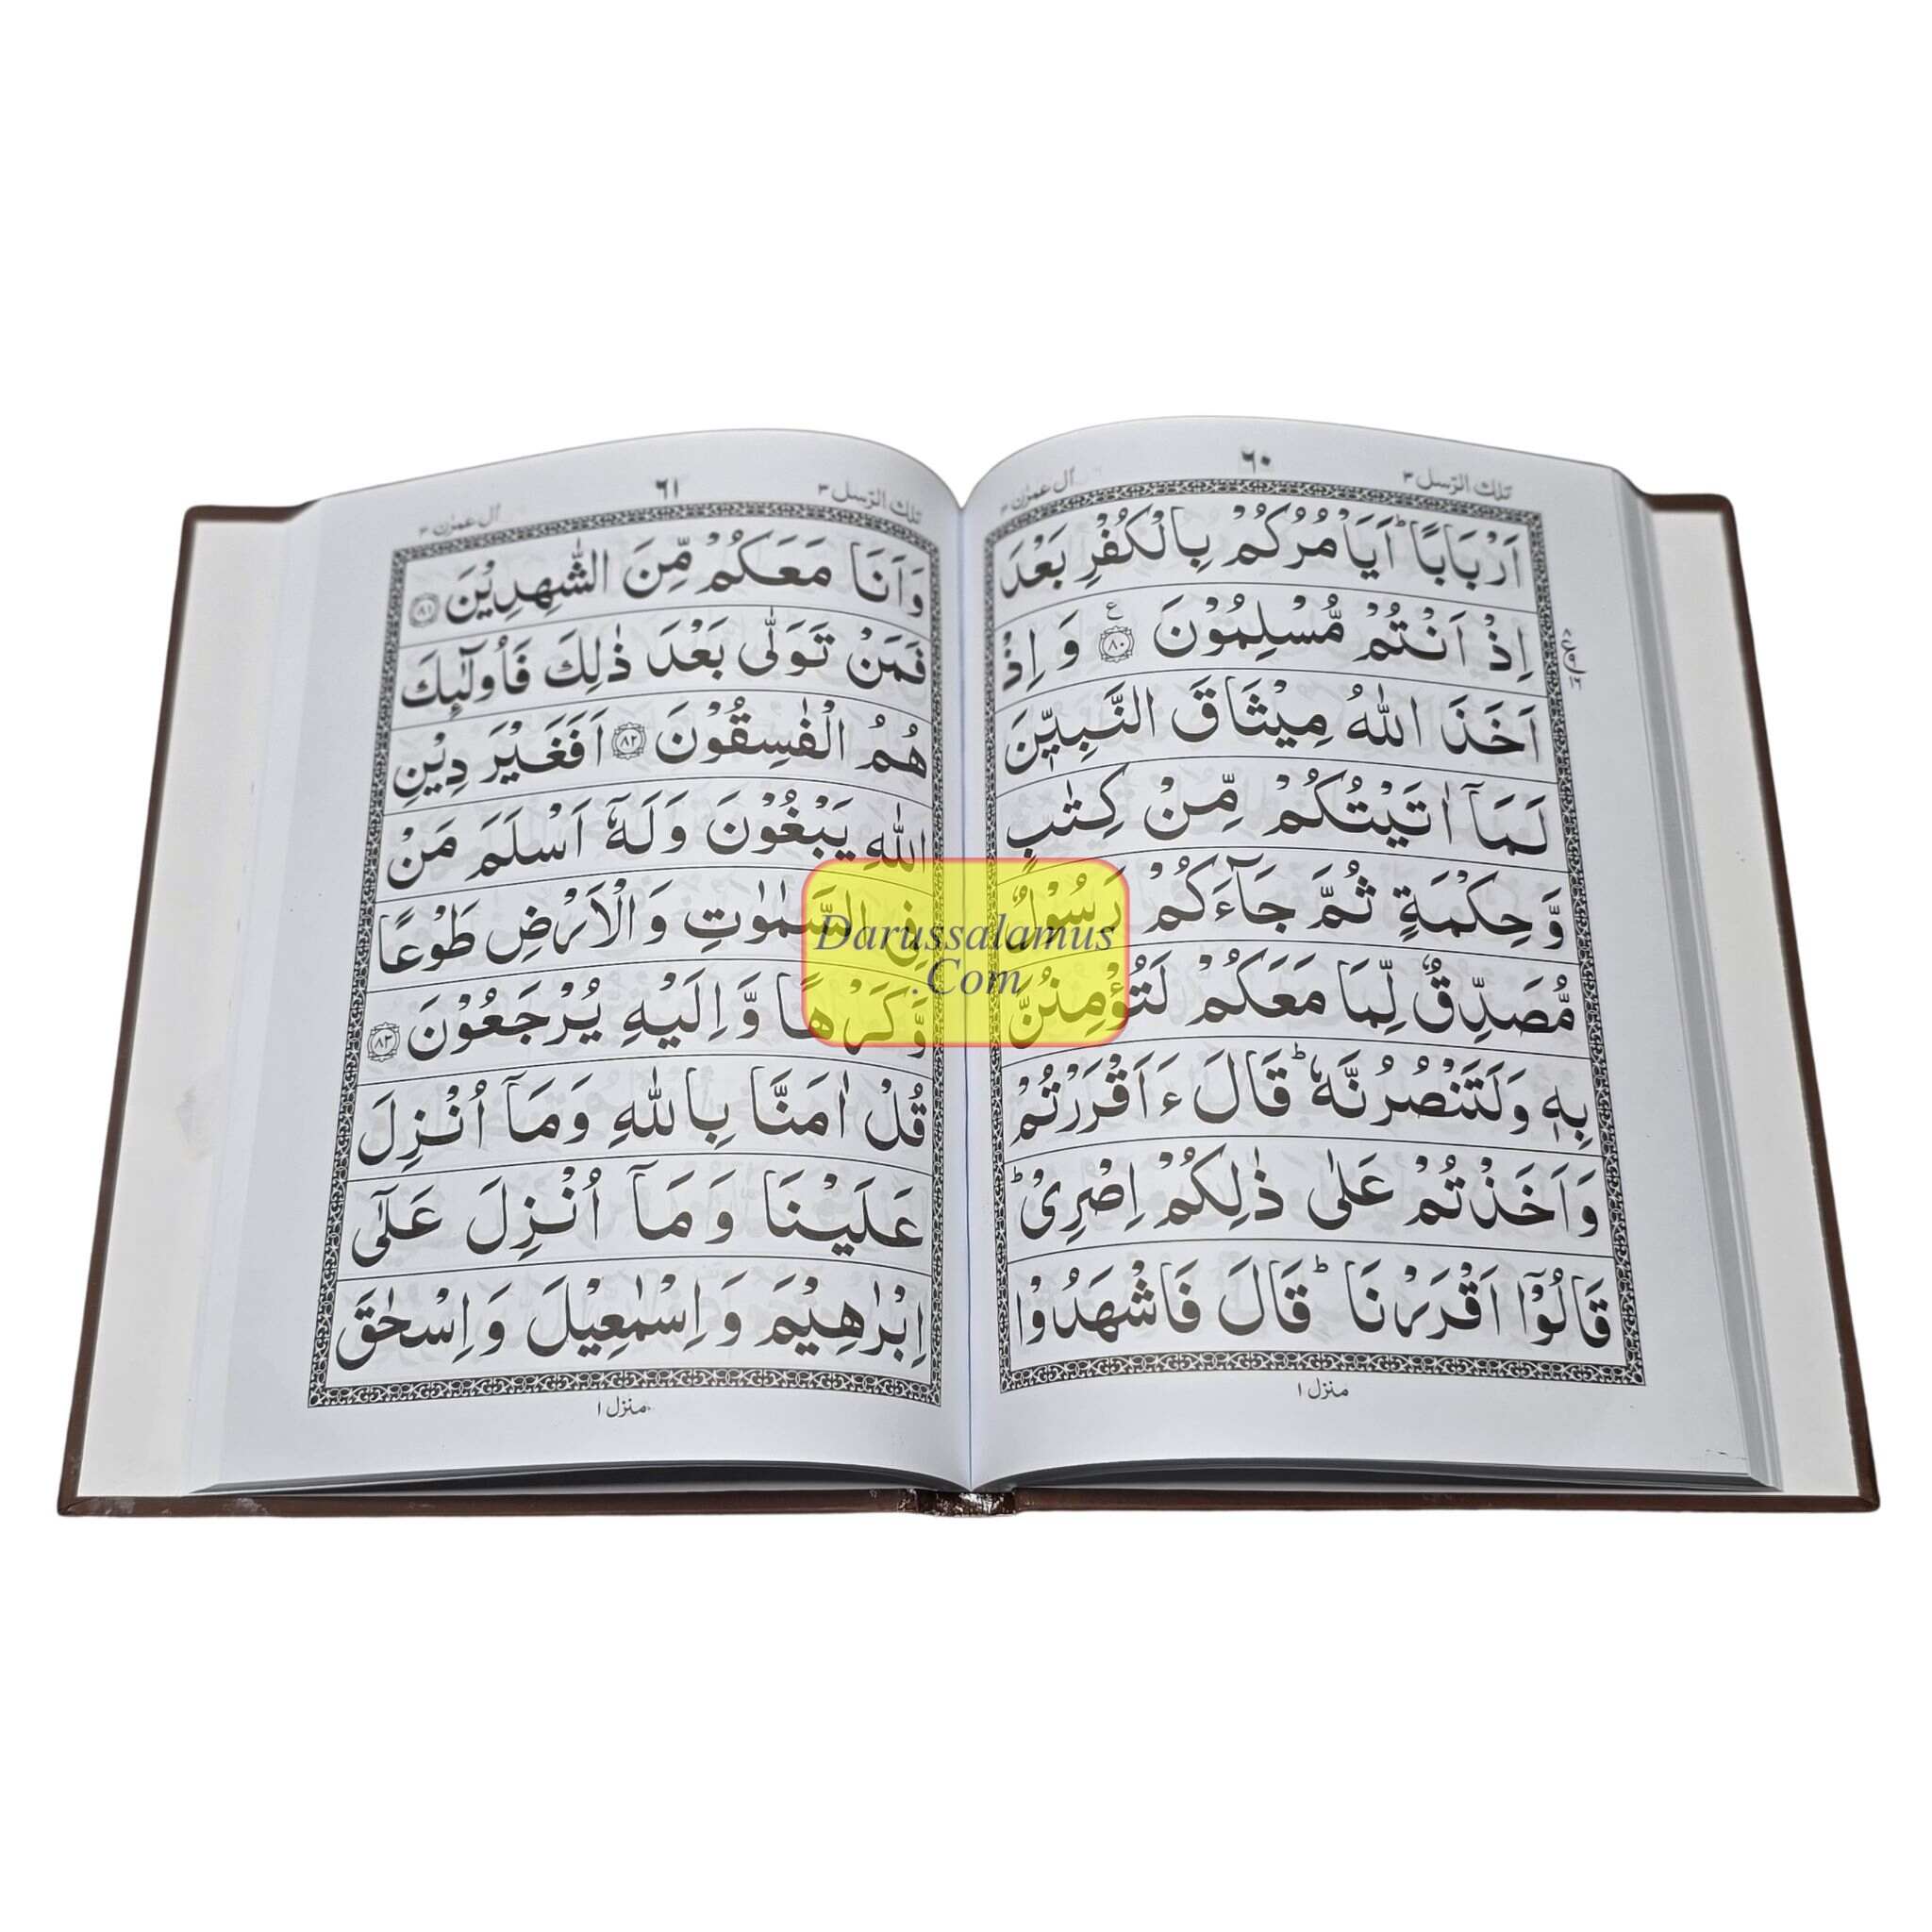 تلك الرسل ۳
٦٠
اٰل عمرٰن ۳
اَرْبَابًا ؕ اَيَاۡمُرُكُمْ بِالْكُفْرِ بَعْدَ
اِذْ اَنْتُمْ مُّسْلِمُوْنَ ﴿٨٠﴾ ع وَ اِذْ
اَخَذَ اللّٰهُ مِيْثَاقَ النَّبِيّٖنَ
لَمَاۤ اٰتَيْتُكُمْ مِّنْ كِتٰبٍ
وَّحِكْمَةٍ ثُمَّ جَآءَكُمْ رَسُوْلٌ
مُّصَدِّقٌ لِّمَا مَعَكُمْ لَتُؤْمِنُنَّ
بِهٖ وَلَتَنْصُرُنَّهٗ ؕ قَالَ ءَاَقْرَرْتُمْ
وَاَخَذْتُمْ عَلٰى ذٰلِكُمْ اِصْرِىْ ؕ
قَالُوْۤا اَقْرَرْنَا ؕ قَالَ فَاشْهَدُوْا
منزل ١
تلك الرسل ۳
٦١
اٰل عمرٰن ۳
وَاَنَا مَعَكُمْ مِّنَ الشّٰهِدِيْنَ ﴿٨١﴾
فَمَنْ تَوَلّٰى بَعْدَ ذٰلِكَ فَاُولٰٓئِكَ
هُمُ الْفٰسِقُوْنَ ﴿٨٢﴾ اَفَغَيْرَ دِيْنِ
اللّٰهِ يَبْغُوْنَ وَلَهٗۤ اَسْلَمَ مَنْ
فِى السَّمٰوٰتِ وَالْاَرْضِ طَوْعًا
وَّكَرْهًا وَّاِلَيْهِ يُرْجَعُوْنَ ﴿٨٣﴾
قُلْ اٰمَنَّا بِاللّٰهِ وَمَاۤ اُنْزِلَ
عَلَيْنَا وَمَاۤ اُنْزِلَ عَلٰٓى
اِبْرٰهِيْمَ وَاِسْمٰعِيْلَ وَاِسْحٰقَ
منزل ١
Darussalamus
.Com